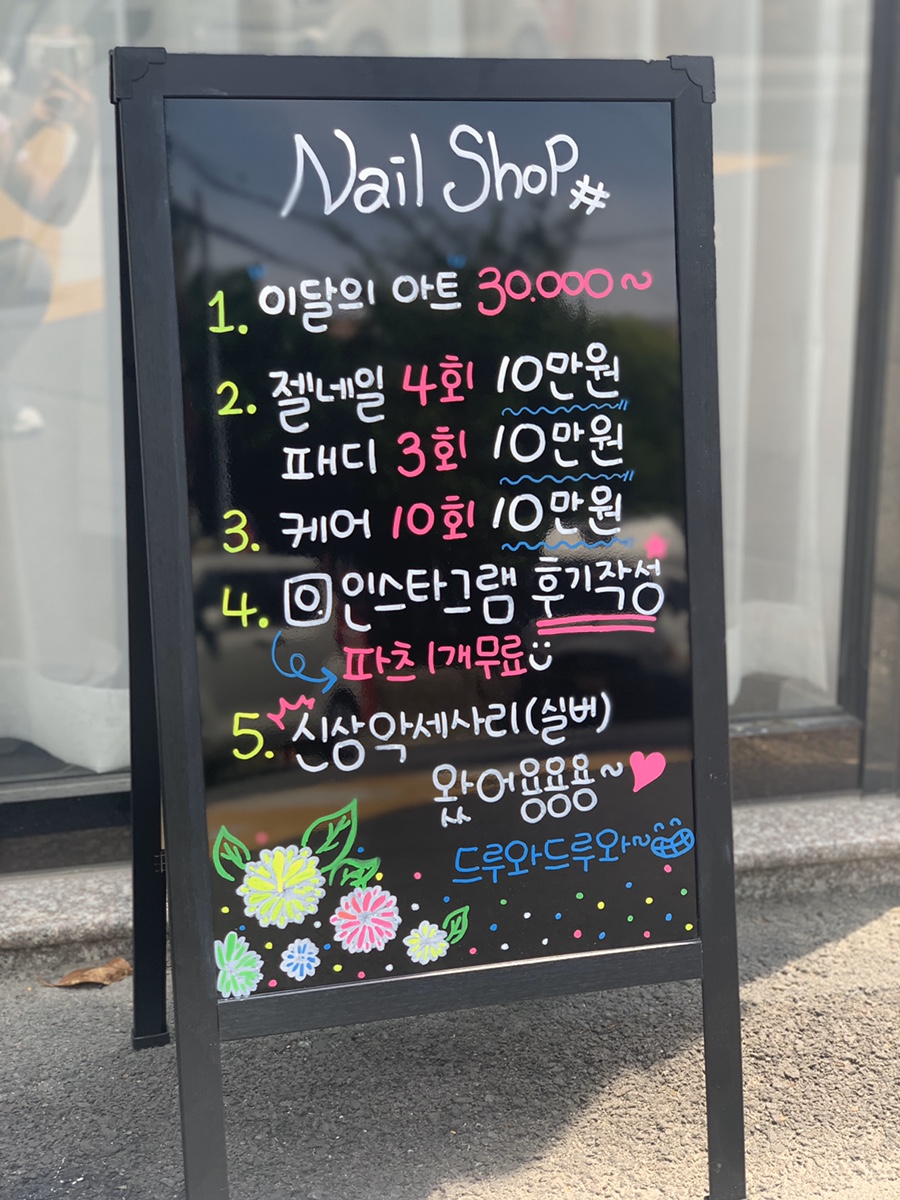 Nail Shop#
1. 이달의 아트 30.000~
2. 젤네일 4회 10만원
패디 3회 10만원
3. 케어 10회 10만원
4. 인스타그램 후기작성
파츠 1개무료
5. 신상악세사리(실버)
왔어용용용~
드루와드루와~